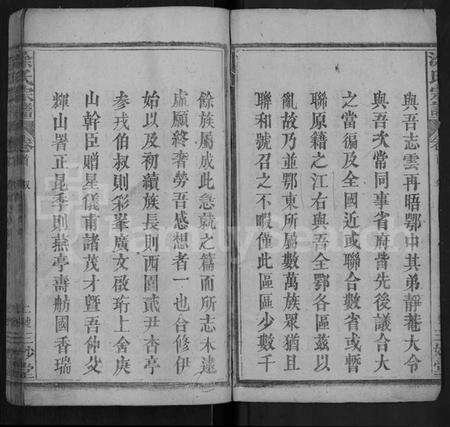 與吾志雲再晤鄂中其弟靜菴大令
與吾次常同事省府嘗先後議合大
之當徧及全國近或聯合數省或暫
聯原籍之江右與吾全鄂各區茲以
亂故乃並鄂東所屬數萬族眾猶且
聯和號召之不暇僅此區區少數千
餘族屬成此急就之篇而所志未逮
處顧終耆勞吾感想者一也合修伊
始以及初續族長則西園貳尹杏亭
參戎伯叔則彩舉廣文啟珩上舍庚
山幹臣贈星儀甫諸茂才暨吾仲父
輝山署正昆季則燕亭壽舫國香瑞
涂氏宗譜
卷首
涂氏宗譜
卷